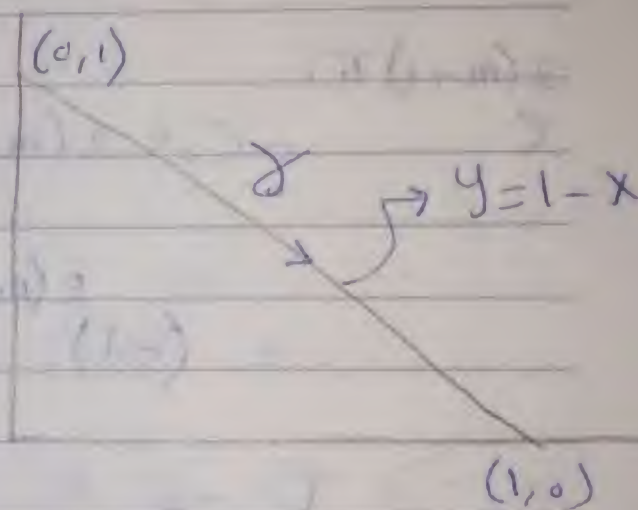 (0,1)
γ
y = 1 - x
(1,0)